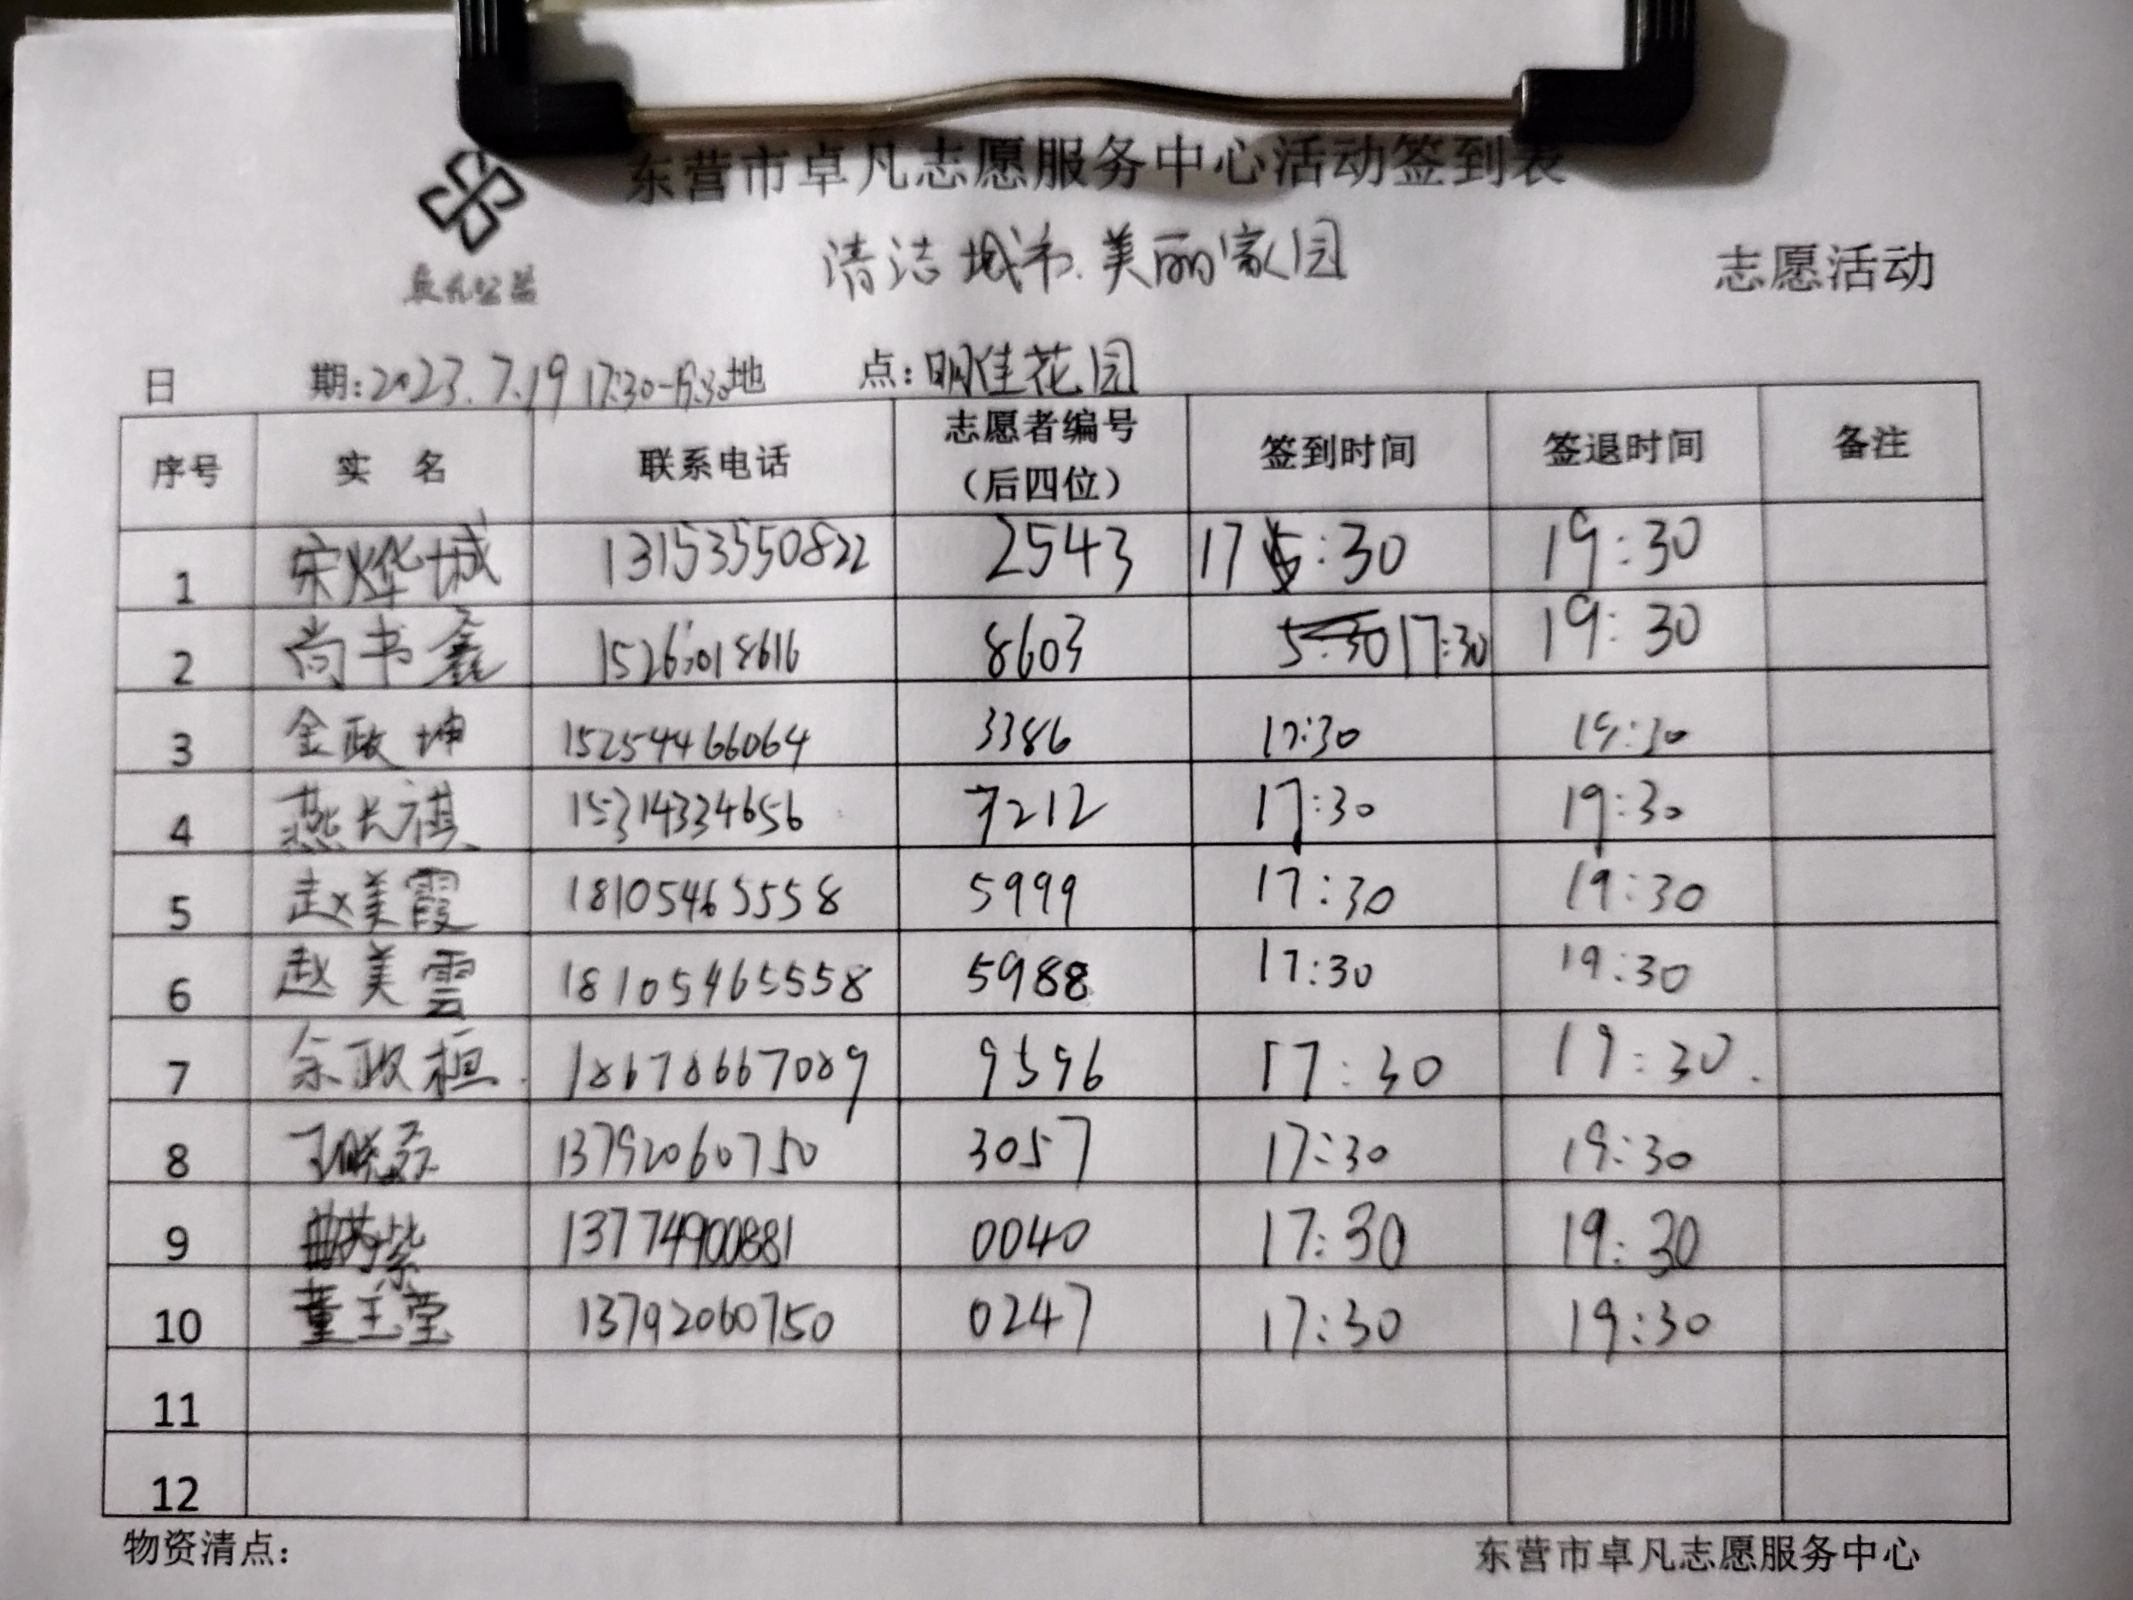 东营市卓凡志愿服务中心活动签到表
清洁城市.美丽家园 志愿活动
卓凡公益
日 期:2023.7.19 17:30-19:30 地 点:明佳花园
序号 实 名 联系电话 志愿者编号（后四位） 签到时间 签退时间 备注
1 宋烨城 13153550822 2543 17:30 19:30
2 尚书鑫 15263018616 8603 5:30 17:30 19:30
3 金政坤 15254466064 3386 17:30 19:30
4 燕长祺 15314334656 7212 17:30 19:30
5 赵美霞 18105465558 5999 17:30 19:30
6 赵美雲 18105465558 5988 17:30 19:30
7 余政桓 18678667089 9596 17:30 19:30.
8 13792060750 3057 17:30 19:30
9 紫 13774900881 0040 17:30 19:30
10 董玉莹 13792060750 0247 17:30 19:30
11
12
物资清点: 东营市卓凡志愿服务中心